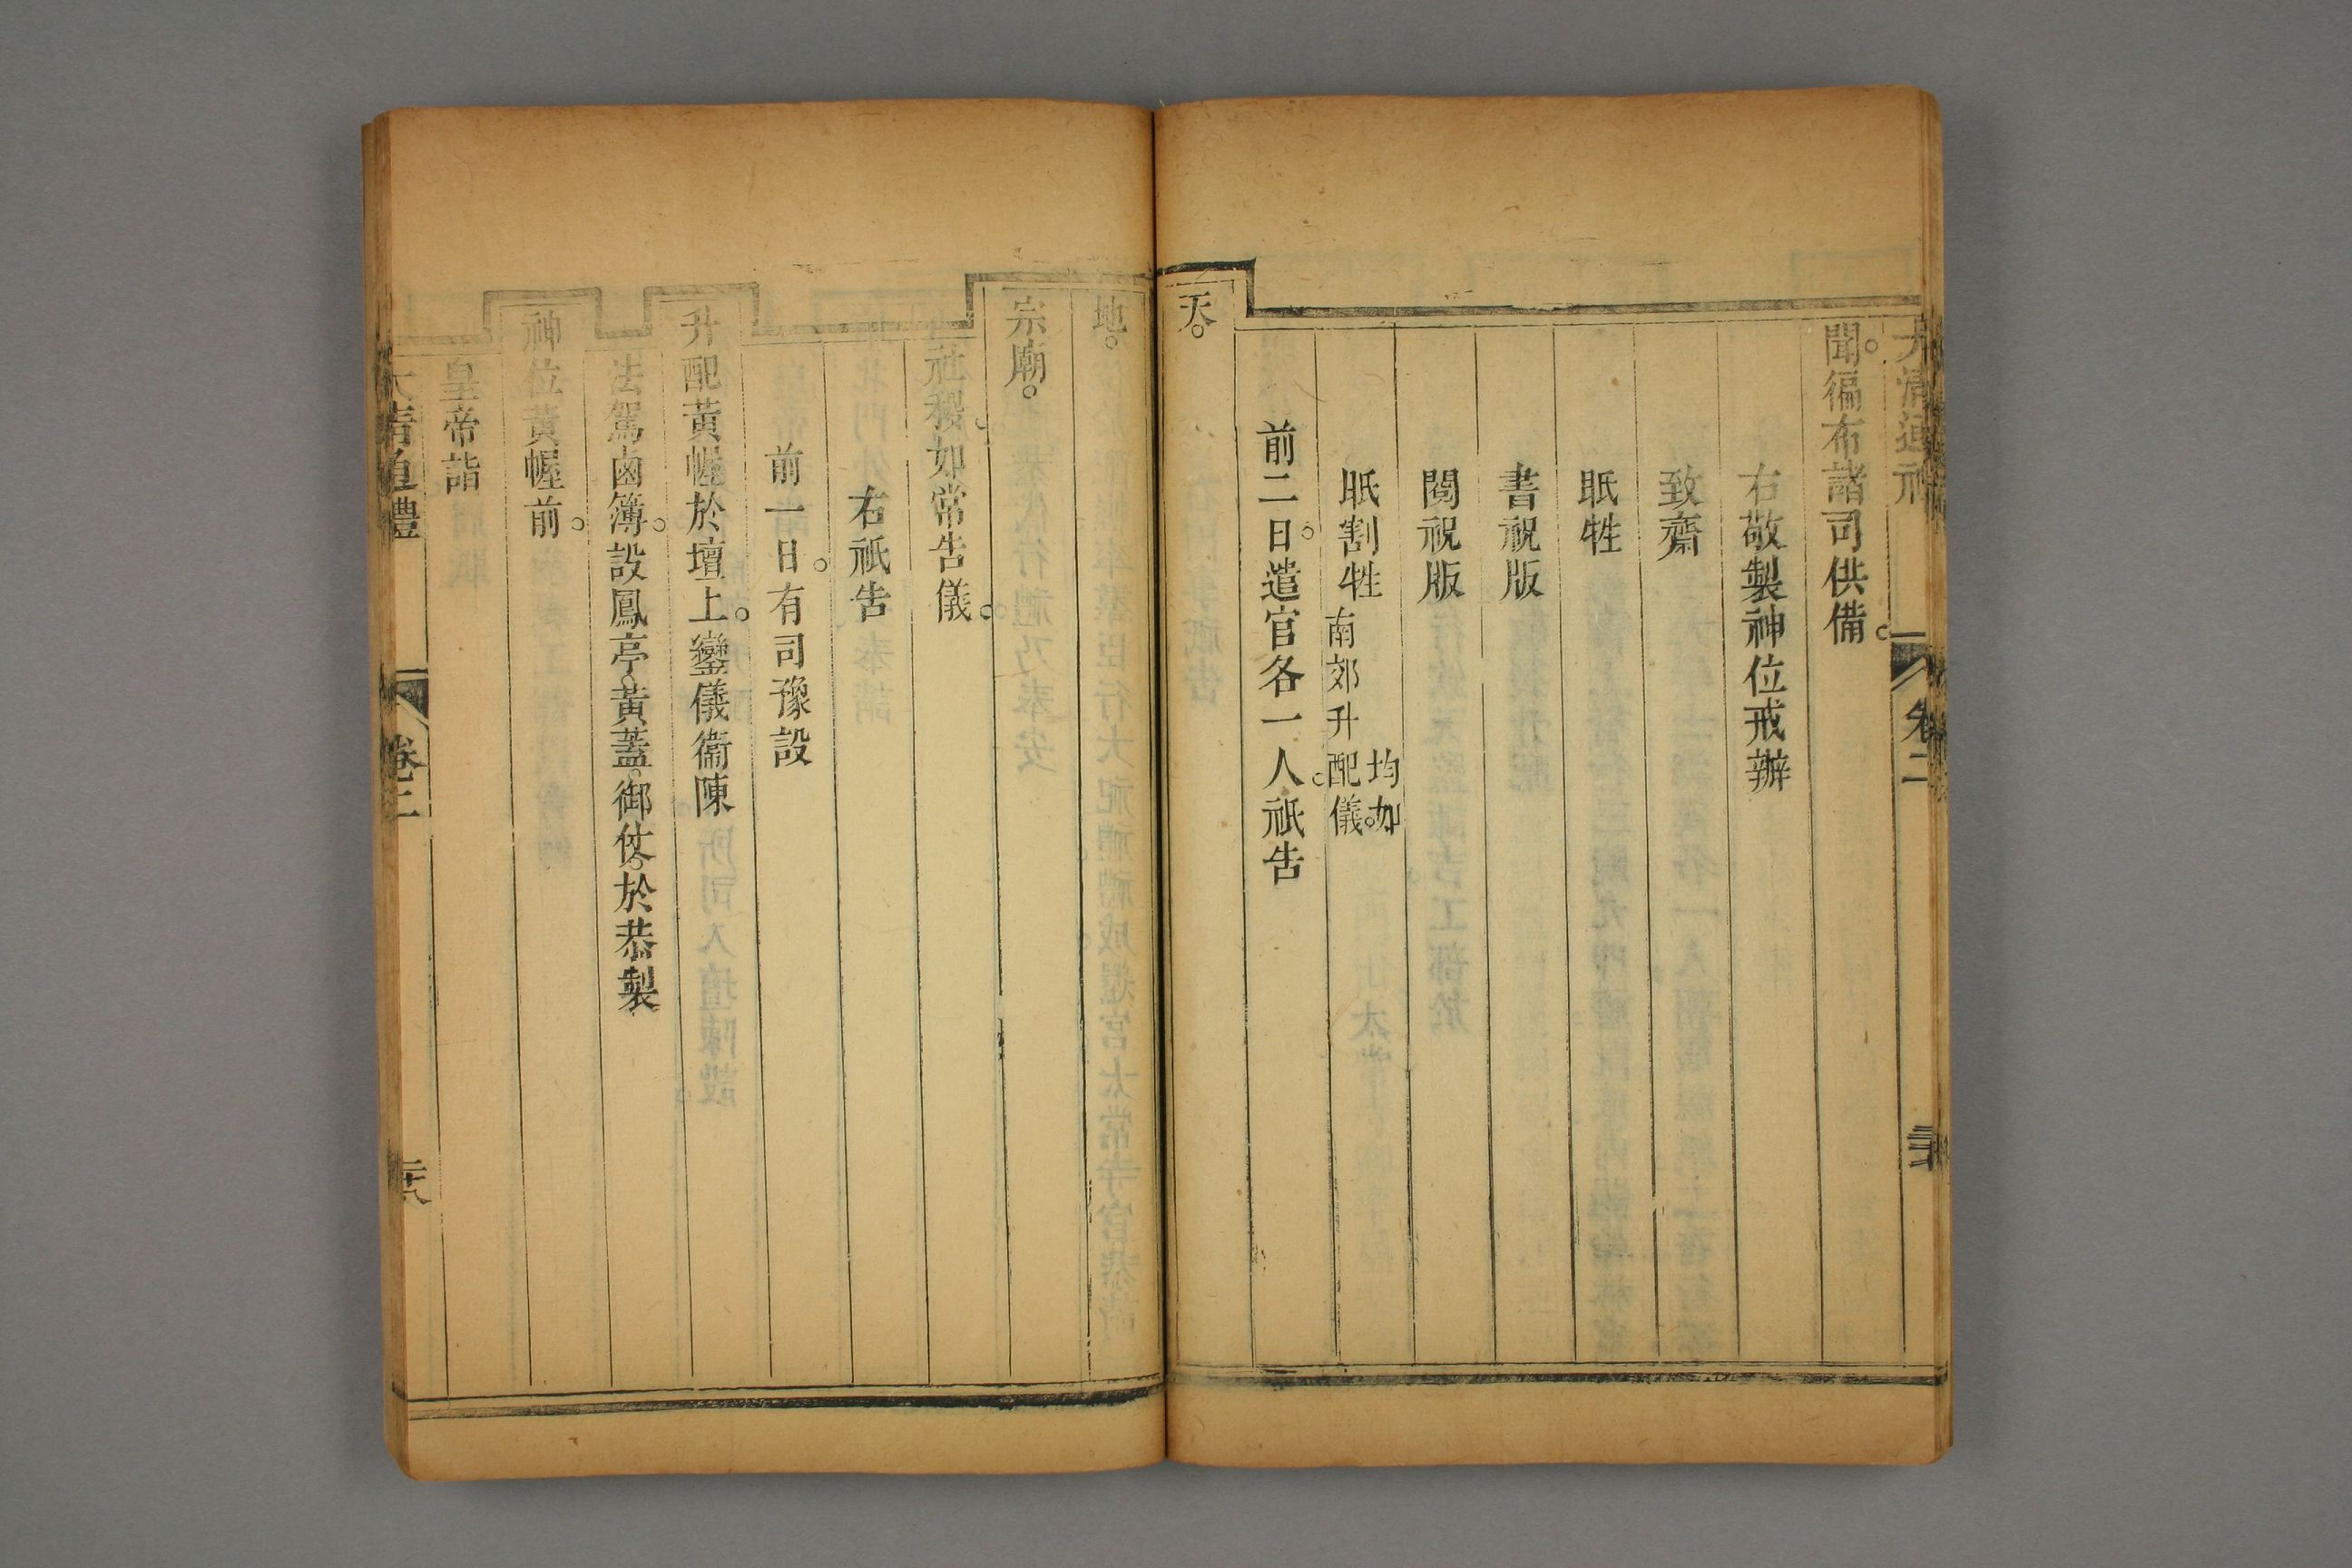 大清通禮
卷二
聞。徧布諸司供備。
右敬製神位戒辦
致齋
眡牲
書祝版
閱祝版
眡割牲 均如南郊升配儀。
前二日。遣官各一人。祇告
天。
地。
宗廟。
社稷。如常告儀。
右祇告
前一日。有司豫設
升配黃幄於壇上。鑾儀衞陳
法駕鹵簿。設鳳亭。黃蓋。御仗。於恭製
神位黃幄前。
皇帝詣
大清通禮
卷二